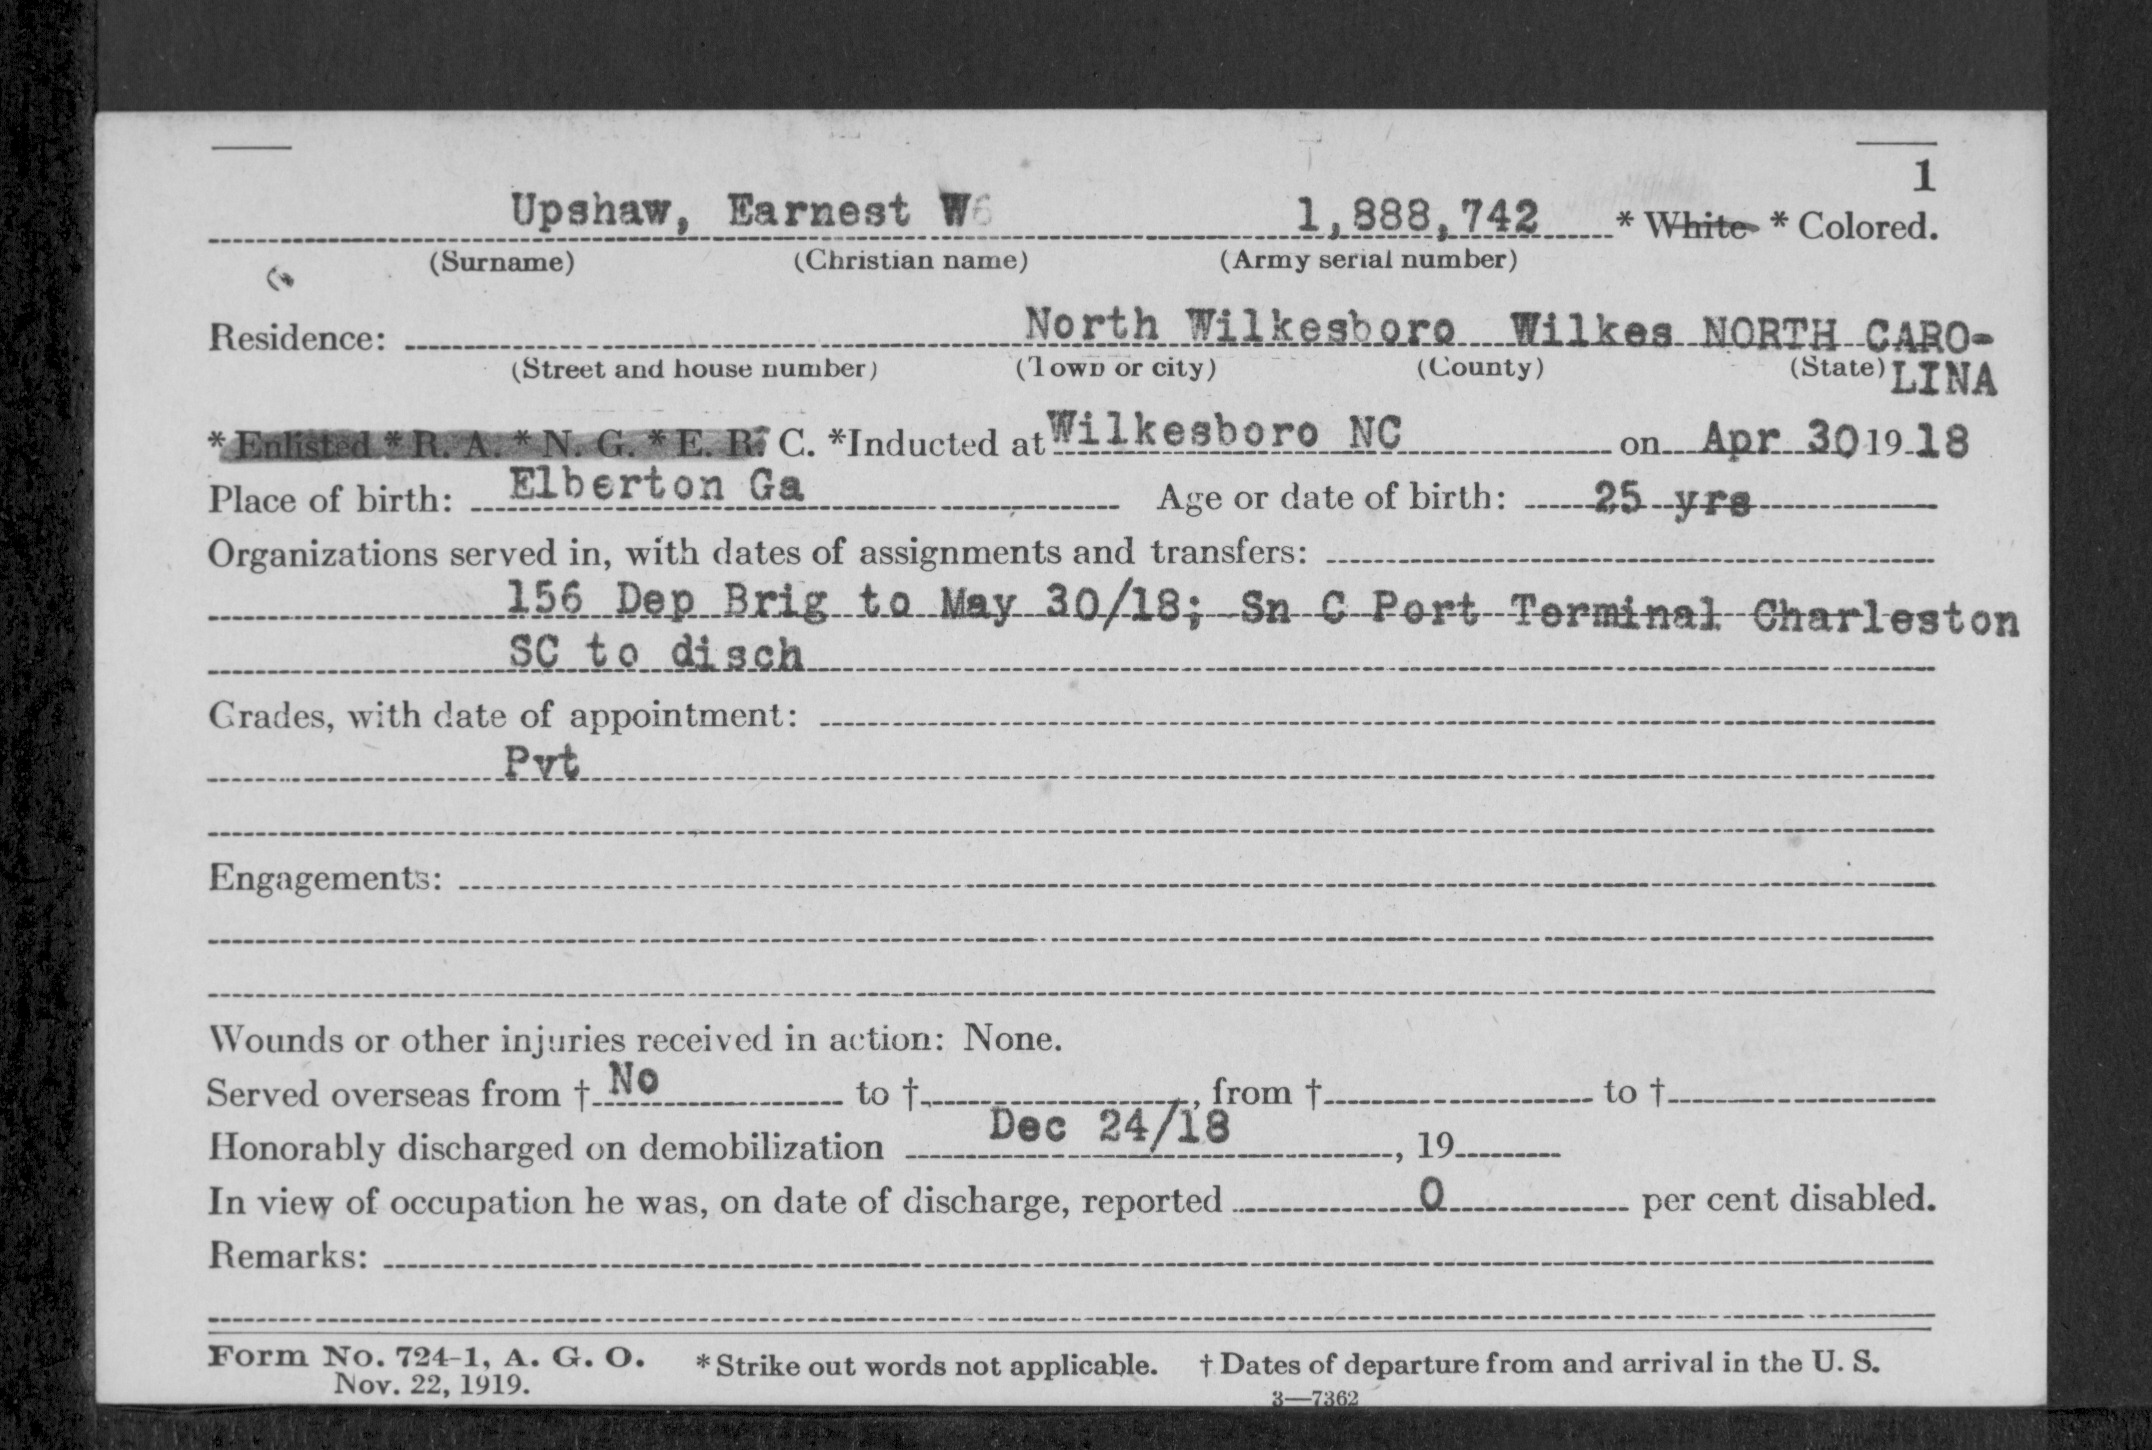 1
Upshaw, Earnest W 1,888,742 * White * Colored.
(Surname) (Christian name) (Army serial number)
Residence: North Wilkesboro Wilkes NORTH CARO-
(Street and house number) (Town or city) (County) (State) LINA
* Enlisted * R. A. * N. G. * E. R. C. *Inducted at Wilkesboro NC on Apr 30 19 18
Place of birth: Elberton Ga Age or date of birth: 25 yrs
Organizations served in, with dates of assignments and transfers:
156 Dep Brig to May 30/18; Sn C Port Terminal Charleston
SC to disch
Grades, with date of appointment:
Pvt
Engagements:
Wounds or other injuries received in action: None.
Served overseas from † No to †, from † to †
Honorably discharged on demobilization Dec 24/18, 19
In view of occupation he was, on date of discharge, reported 0 per cent disabled.
Remarks:
Form No. 724-1, A. G. O. * Strike out words not applicable. † Dates of departure from and arrival in the U. S.
Nov. 22, 1919.
3—7362